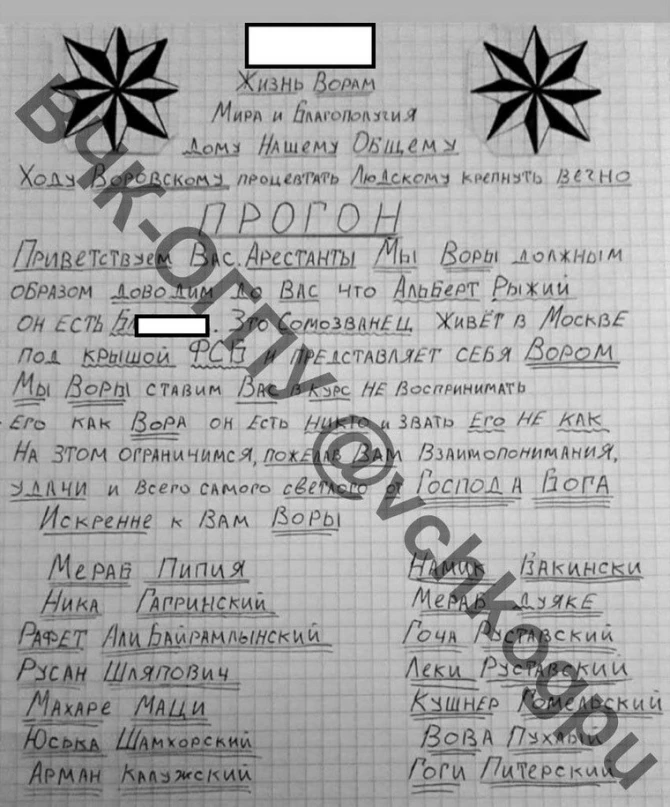 Жизнь Ворам
Мира и Благополучия
Дому Нашему Общему
Ходу Воровскому процветать Людскому крепнуть вечно
ПРОГОН
Приветствуем Вас. Арестанты Мы Воры должным
образом доводим до Вас что Альберт Рыжий
он есть . Это Сомозванец живёт в Москве
под крышой ФСБ и представляет себя Вором
Мы Воры ставим Вас в курс не воспринимать
его как Вора он есть никто и звать Его не как
На этом ограничимся, пожелав Вам Взаимопонимания,
удачи и всего самого светлого от Господа Бога
Искренне к Вам Воры
Мераб Пипия
Ника Гапринский
Рафет Али Байрамлынский
Русан Шляпович
Махаре Маци
Юська Шамхорский
Арман Калужский
Намик Бакински
Мераб Дуяке
Гоча Руставский
Леки Руставский
Кушнер Гомельский
Вова Пухлый
Гоги Питерский
ВЧК-ОГПУ @vchkogpu